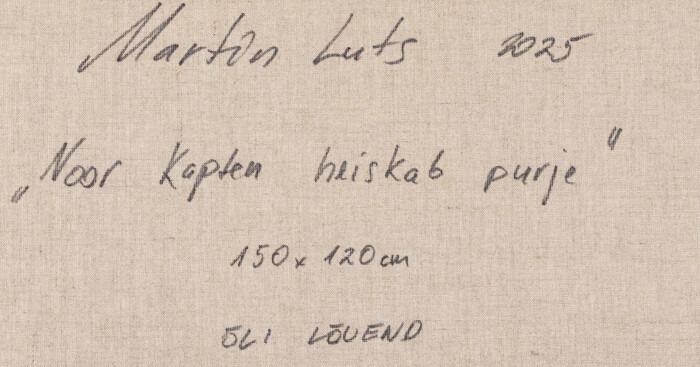 Martin Luts 2025
„Noor Kapten heiskab purje"
150 x 120 cm
ÕLI LÕUEND